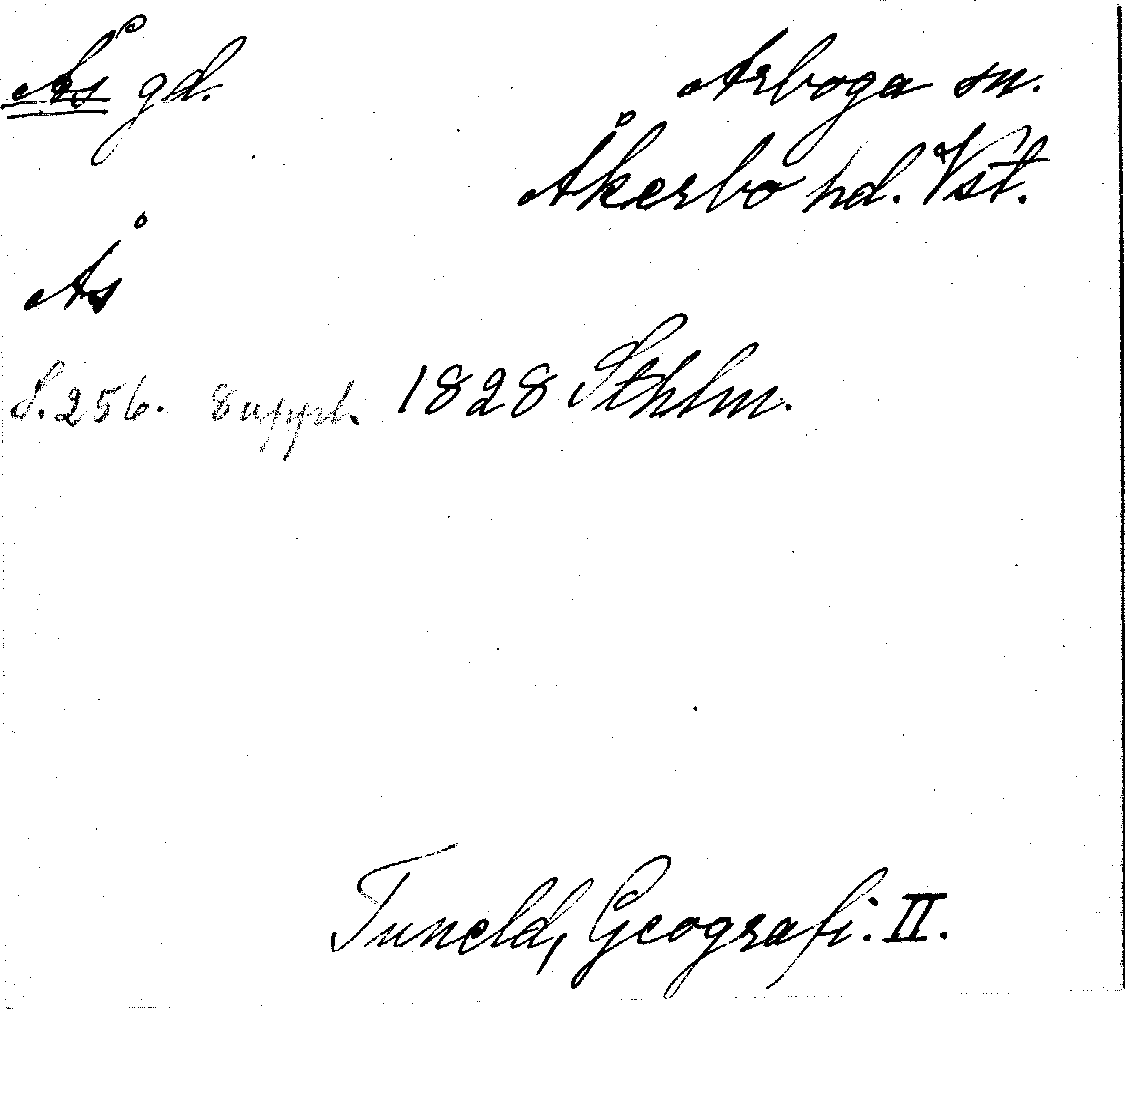 Ås gd.
Arboga sn.
Åkerbo hd. Vst.
Ås
S. 256. Suppl. 1828 Sthlm.
Tuneld, Geografi. II.